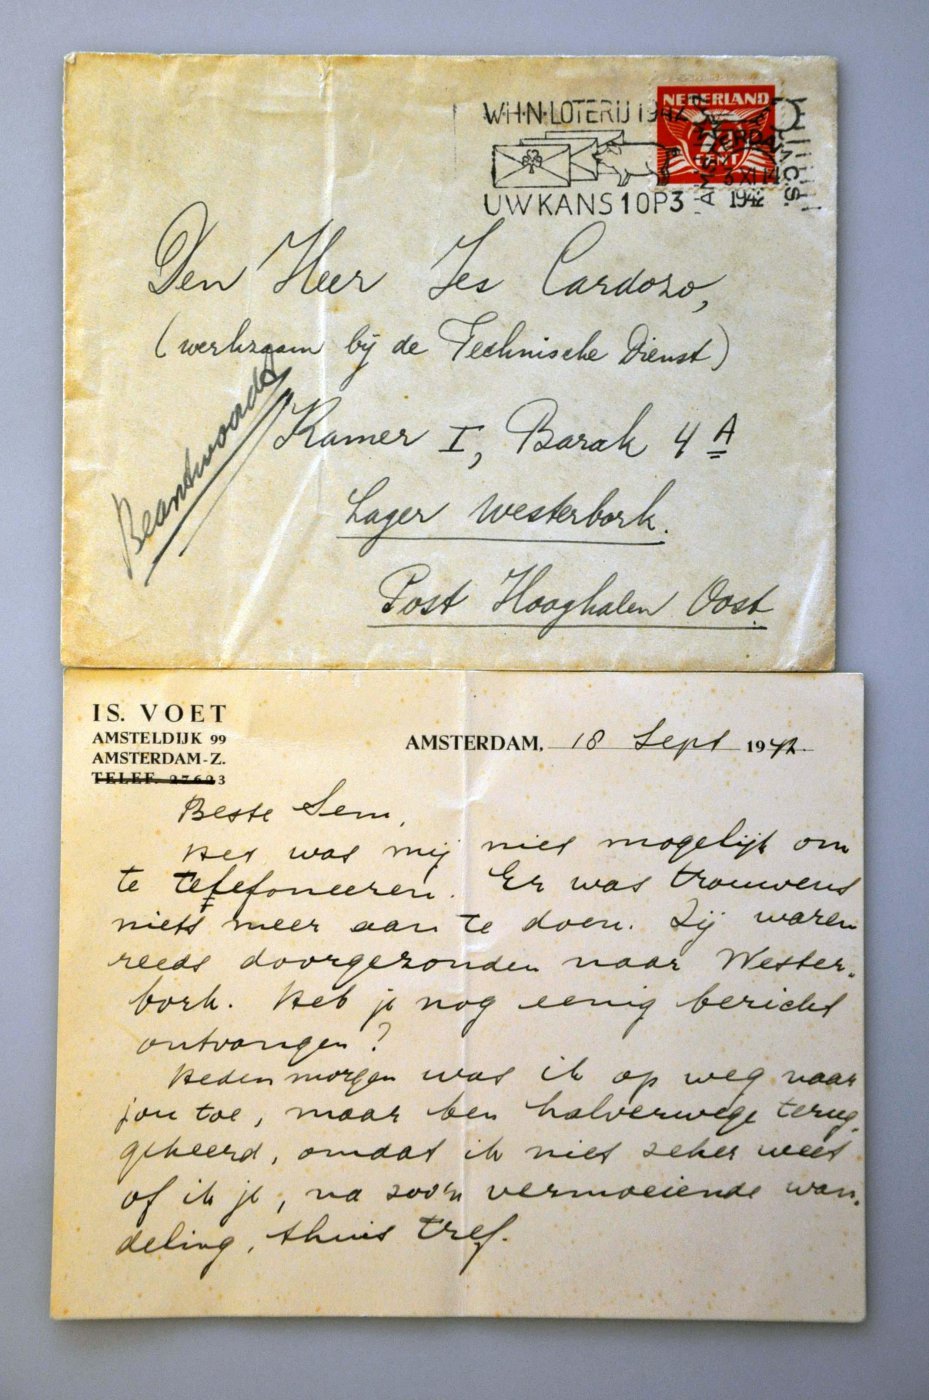 W·H·N·LOTERIJ 1942
UW KANS 1 OP 3
NEDERLAND
CENT
AMSTERDAM
6 XI 14
1942
Den Heer Jes Cardozo,
(werkzaam bij de Technische Dienst)
Beantwoord
Kamer I, Barak 4 A
Lager Westerbork.
Post Hooghalen Oost.
IS. VOET
AMSTELDIJK 99
AMSTERDAM-Z.
TELEF. 27623
AMSTERDAM, 18 Sept 1942
Beste Sem,
Het was mij niet mogelijk om
te telefoneeren. Er was trouwens
niets meer aan te doen. Zij waren
reeds doorgezonden naar Wester-
bork. Heb je nog eenig bericht
ontvangen?
Heden morgen was ik op weg naar
jou toe, maar ben halverwege terug
gekeerd, omdat ik niet zeker weet
of ik je, na zoo'n vermoeiende wan-
deling, thuis tref.